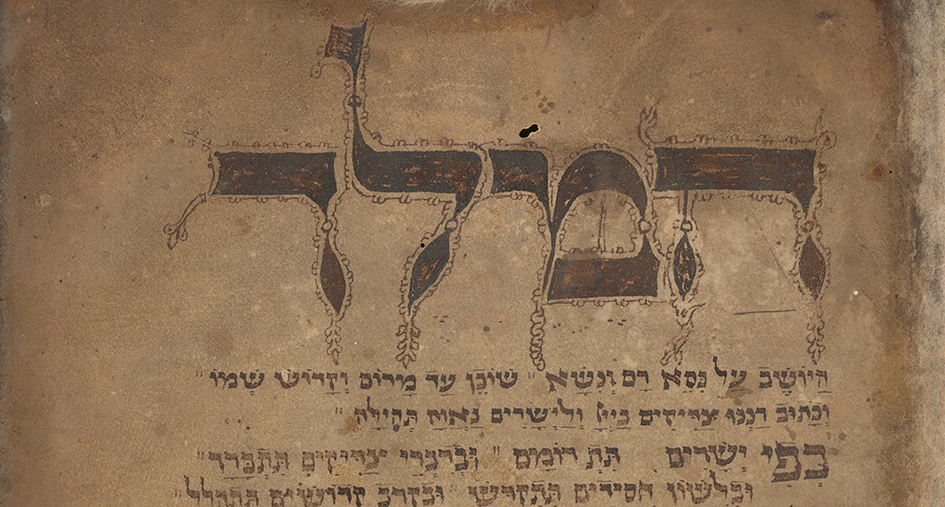 המלך
היושב על כסא רם ונשא " שוכן עד מרום וקדוש שמו "
וכתוב רננו צדיקים ולישרים נאוה תהילה "
בפי ישרים תת רומם " ובדברי צדיקים תתברך "
ובלשון חסידים תתקדש " ובקרב קדושים תתהלל "